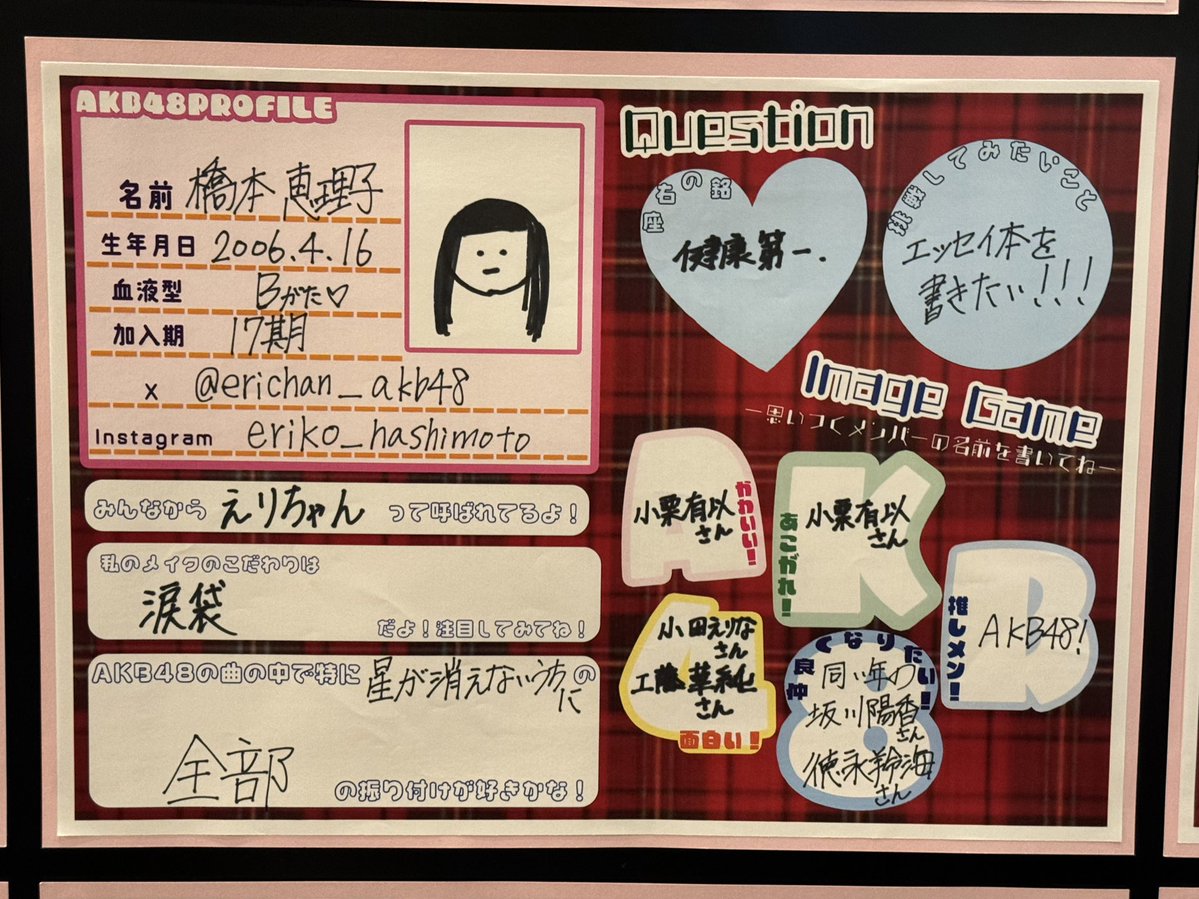 AKB48PROFILE
名前 橋本恵理子
生年月日 2006.4.16
血液型 Bがた♡
加入期 17期
X @erichan_akb48
Instagram eriko_hashimoto
みんなから えりちゃん って呼ばれてるよ！
私のメイクのこだわりは
涙袋
だよ！注目してみてね！
AKB48の曲の中で特に 星が消えないうちに の
全部
の振り付けが好きかな！
Question
座右の銘
健康第一.
挑戦してみたいこと
エッセイ本を
書きたい!!!
Image Game
ー思いつくメンバーの名前を書いてねー
A
かわいい！
小栗有以
さん
K
あこがれ！
小栗有以
さん
B
推しメン！
AKB48!
4
小田えりな
さん
工藤華純
さん
面白い！
8
仲良くなりたい！
同い年の
坂川陽香
さん
徳永羚海
さん